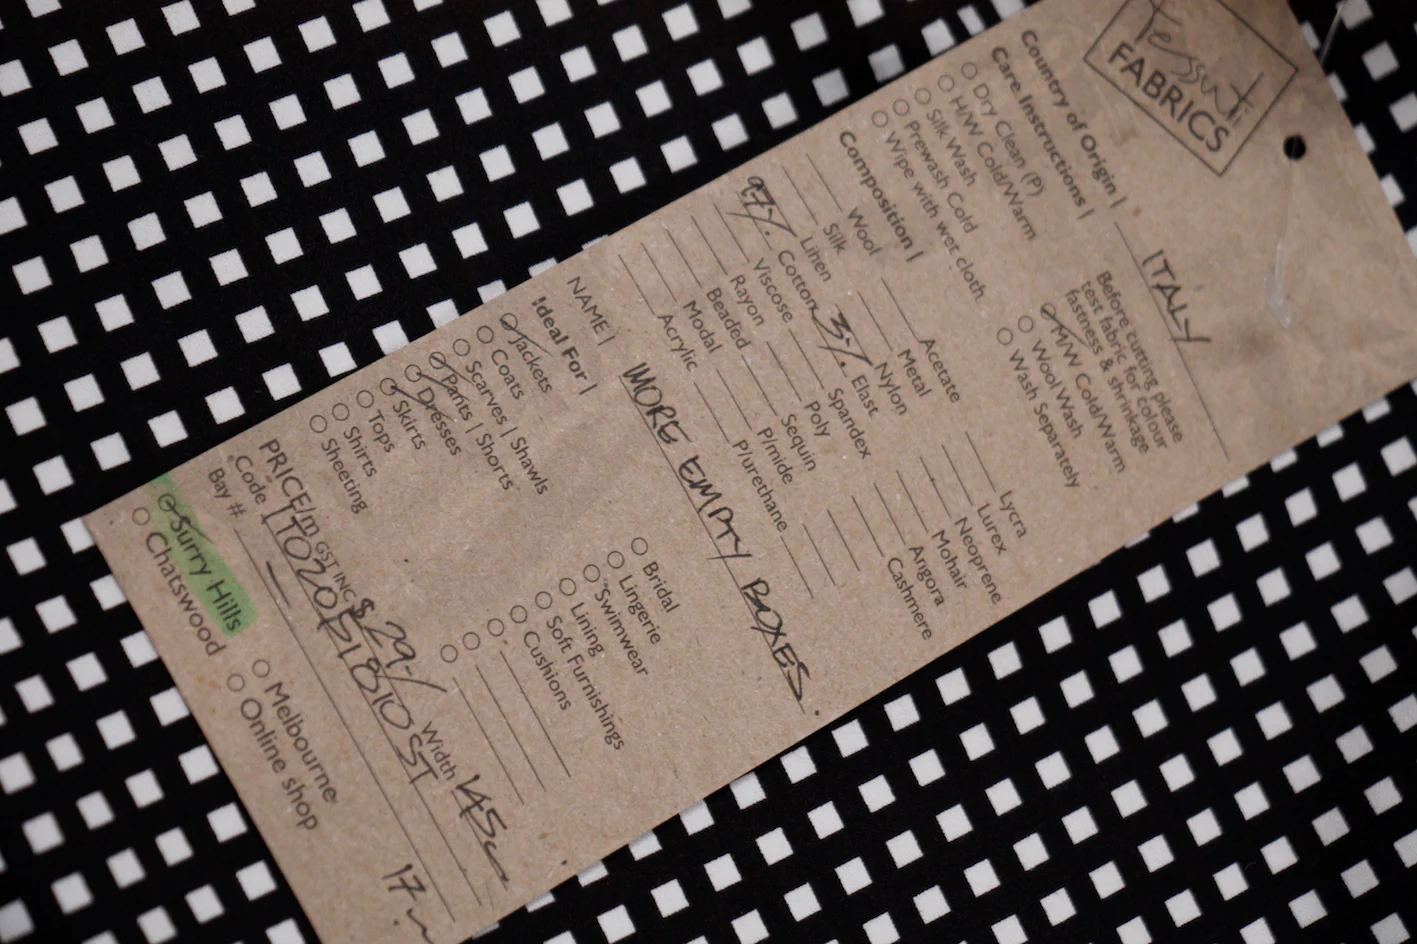 Tessuti
FABRICS
Country of Origin | ITALY
Care Instructions |
Before cutting please
test fabric for colour
fastness & shrinkage
Dry Clean (P)
H/W Cold/Warm
Silk Wash
Prewash Cold
Wipe with wet cloth
M/W Cold/Warm
Wool Wash
Wash Separately
Composition |
Wool
Silk
Linen
97% Cotton
Viscose
Rayon
Beaded
Modal
Acrylic
Acetate
Metal
Nylon
3% Elast
Spandex
Poly
Sequin
P/mide
P/urethane
Lycra
Lurex
Neoprene
Mohair
Angora
Cashmere
NAME | MORE EMPTY BOXES.
Ideal For |
Jackets
Coats
Scarves | Shawls
Pants | Shorts
Dresses
Skirts
Tops
Shirts
Sheeting
Bridal
Lingerie
Swimwear
Lining
Soft Furnishings
Cushions
PRICE/m GST INC $ 29-/ Width 145c
Code |
Bay # 17
Surry Hills
Chatswood
Melbourne
Online shop